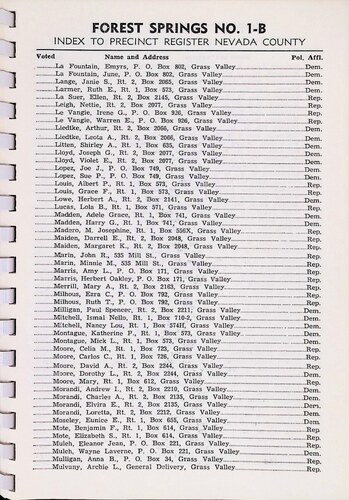 FOREST SPRINGS NO. 1-B
INDEX TO PRECINCT REGISTER NEVADA COUNTY
Voted Name and Address Pol. Affl.
La Fountain, Emyrs, P. O. Box 802, Grass Valley Dem.
La Fountain, June, P. O. Box 802, Grass Valley Dem.
Lange, Janie S., Rt. 2, Box 2066, Grass Valley Dem.
Larmer, Ruth E., Rt. 1, Box 573, Grass Valley Dem.
La Suer, Ellen, Rt. 2, Box 2145, Grass Valley Rep.
Leigh, Nettie, Rt. 2, Box 2077, Grass Valley Rep.
Le Vangie, Irene G., P. O. Box 926, Grass Valley Rep.
Le Vangie, Warren E., P. O. Box 926, Grass Valley Rep.
Liedtke, Arthur, Rt. 2, Box 2066, Grass Valley Dem.
Liedtke, Leola A., Rt. 2, Box 2066, Grass Valley Dem.
Litten, Shirley A., Rt. 1, Box 635, Grass Valley Dem.
Lloyd, Joseph G., Rt. 2, Box 2077, Grass Valley Dem.
Lloyd, Violet E., Rt. 2, Box 2077, Grass Valley Dem.
Lopez, Joe J., P. O. Box 749, Grass Valley Dem.
Lopez, Sue P., P. O. Box 749, Grass Valley Dem.
Louis, Albert P., Rt. 1, Box 573, Grass Valley Rep.
Louis, Grace F., Rt. 1, Box 573, Grass Valley Rep.
Lowe, Herbert A., Rt. 2, Box 2141, Grass Valley Dem.
Lucas, Lola B., Rt. 1, Box 571, Grass Valley Rep.
Madden, Adele Grace, Rt. 1, Box 741, Grass Valley Dem.
Madden, Harry G., Rt. 1, Box 741, Grass Valley Dem.
Madero, M. Josephine, Rt. 1, Box 556X, Grass Valley Rep.
Maiden, Darrell E., Rt. 2, Box 2048, Grass Valley Rep.
Maiden, Margaret K., Rt. 2, Box 2048, Grass Valley Rep.
Marin, John R., 535 Mill St., Grass Valley Rep.
Marin, Minnie M., 535 Mill St., Grass Valley Rep.
Marris, Amy L., P. O. Box 171, Grass Valley Rep.
Marris, Herbert Oakley, P. O. Box 171, Grass Valley Rep.
Merrill, Mary A., Rt. 2, Box 2163, Grass Valley Rep.
Milhous, Ezra C., P. O. Box 792, Grass Valley Rep.
Milhous, Ruth T., P. O. Box 792, Grass Valley Rep.
Milligan, Paul Spencer, Rt. 2, Box 2211, Grass Valley Dem.
Mitchell, Ismal Nello, Rt. 1, Box 710-2, Grass Valley Dem.
Mitchell, Nancy Lou, Rt. 1, Box 574H, Grass Valley Dem.
Montague, Katherine P., Rt. 1, Box 573, Grass Valley Dem.
Montague, Mick L., Rt. 1, Box 573, Grass Valley Dem.
Moore, Celia M., Rt. 1, Box 723, Grass Valley Rep.
Moore, Carlos C., Rt. 1, Box 726, Grass Valley Rep.
Moore, David A., Rt. 2, Box 2244, Grass Valley Rep.
Moore, Dorothy L., Rt. 2, Box 2244, Grass Valley Dem.
Moore, Mary, Rt. 1, Box 612, Grass Valley Rep.
Morandi, Andrew I., Rt. 2, Box 2210, Grass Valley Dem.
Morandi, Charles A., Rt. 2, Box 2135, Grass Valley Dem.
Morandi, Elvira E., Rt. 2, Box 2135, Grass Valley Dem.
Morandi, Loretta, Rt. 2, Box 2212, Grass Valley Dem.
Moseley, Eunice E., Rt. 1, Box 655, Grass Valley Dem.
Mote, Benjamin F., Rt. 1, Box 614, Grass Valley Rep.
Mote, Elizabeth S., Rt. 1, Box 614, Grass Valley Rep.
Mulch, Eleanor Jean, P. O. Box 221, Grass Valley Rep.
Mulch, Wayne Laverne, P. O. Box 221, Grass Valley Dem.
Mulligan, Anna B., P. O. Box 34, Grass Valley Rep.
Mulvany, Archie L., General Delivery, Grass Valley Rep.